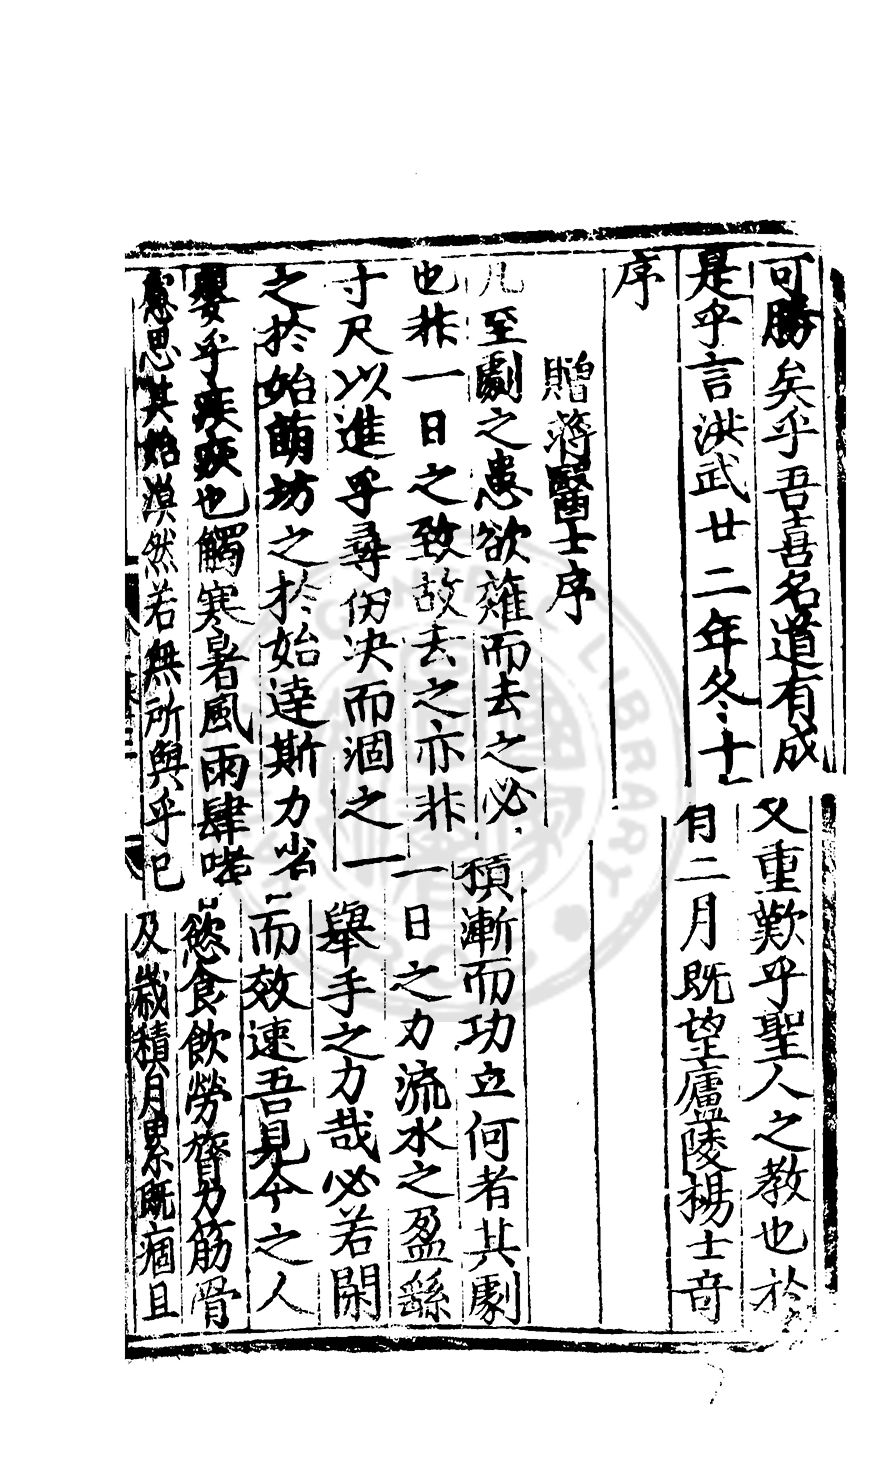 可勝矣乎吾喜名道有成又重歎乎聖人之教也於
是乎言洪武廿二年冬十有二月既望廬陵楊士竒
序
贈蔣醫士序
凡至劇之患欲薙而去之必積漸而功立何者其劇
也非一日之致故去之亦非一日之力流水之盈繇
寸尺以進乎尋仞决而涸之一舉手之力哉必若閑
之於始萌坊之於始達斯力省而效速吾見今之人
嬰乎疾疢也觸寒暑風雨肆嗜慾食飲勞膂力筋骨
思其始漠然若無所與乎已及歲積月累既痼且